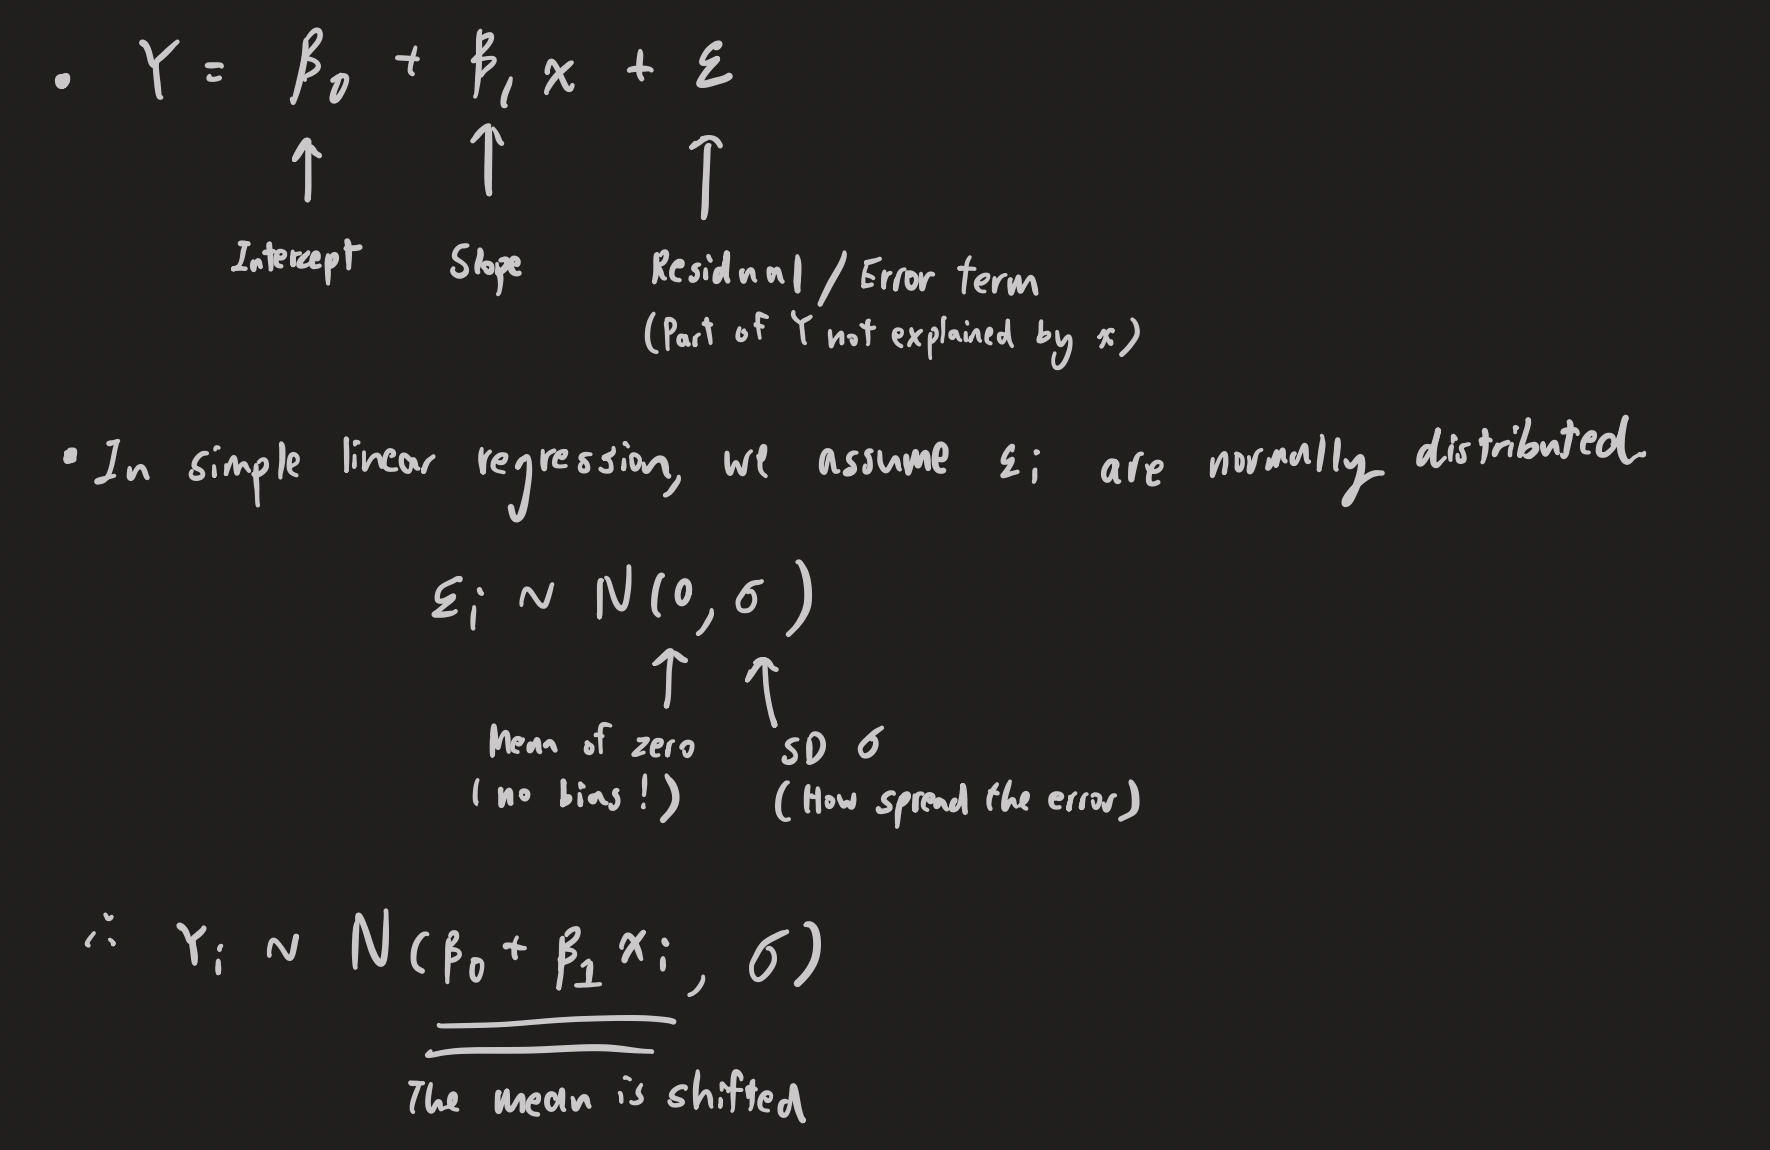 • Y = β₀ + β₁ x + ε
↑ ↑ ↑
Intercept Slope Residual / Error term
(Part of Y not explained by x)
• In simple linear regression, we assume εᵢ are normally distributed
εᵢ ~ N(0, σ)
↑ ↑
Mean of zero SD σ
(no bias!) (How spread the error)
∴ Yᵢ ~ N(β₀ + β₁ xᵢ, σ)
The mean is shifted